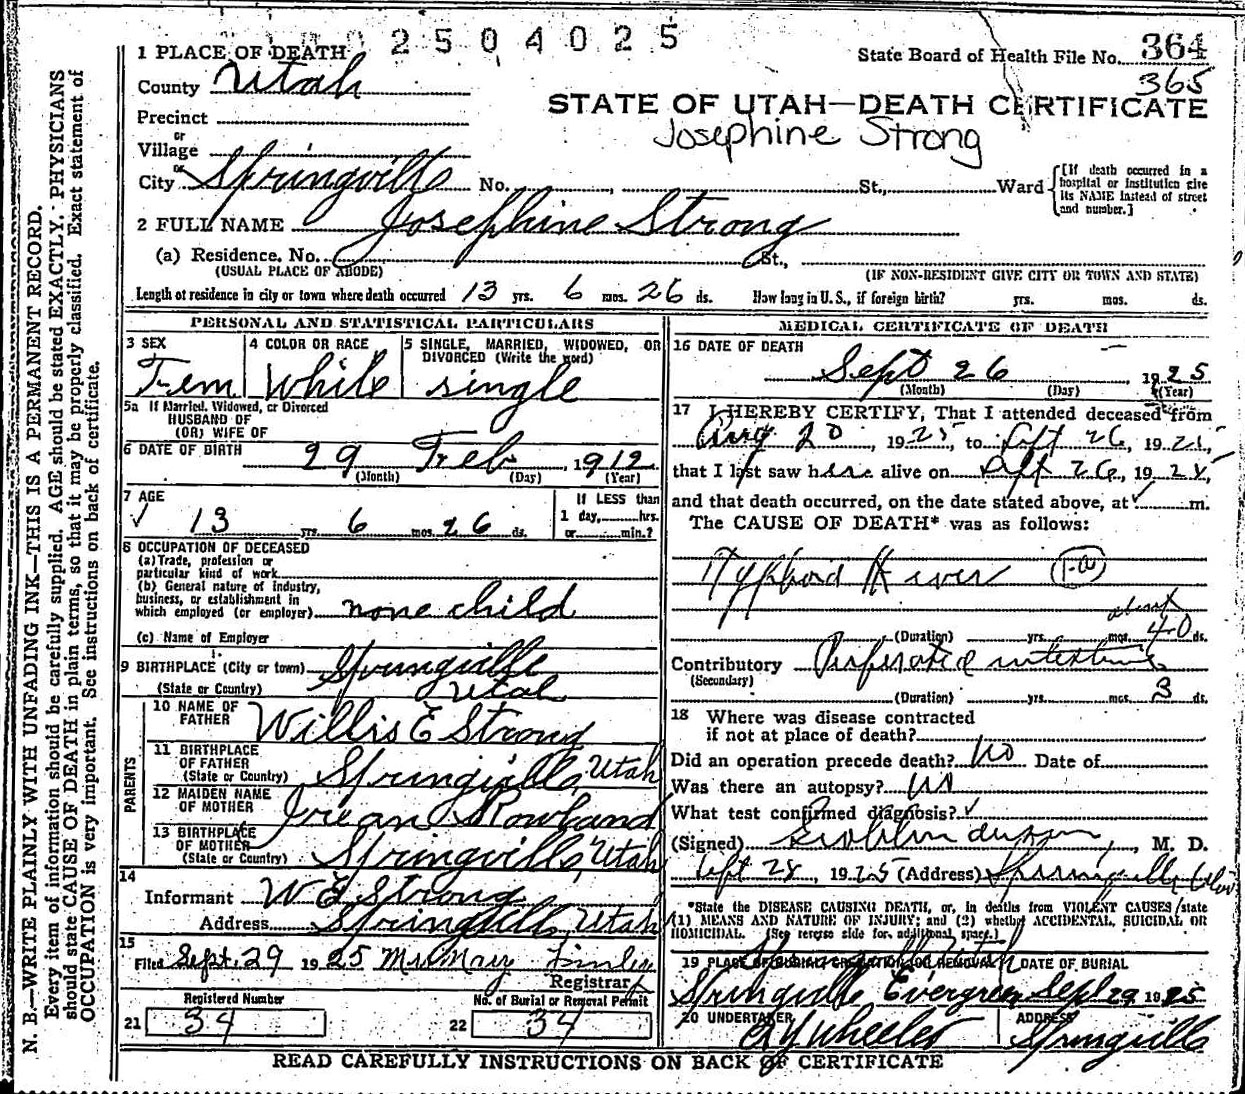 2504025
1 PLACE OF DEATH
State Board of Health File No. 364
365
County Utah
STATE OF UTAH—DEATH CERTIFICATE
Precinct
Josephine Strong
or
Village
or
City Springville No. , St., Ward
[If death occurred in a
hospital or institution give
its NAME instead of street
and number.]
2 FULL NAME Josephine Strong
(a) Residence. No. St.,
(USUAL PLACE OF ABODE) (IF NON-RESIDENT GIVE CITY OR TOWN AND STATE)
Length of residence in city or town where death occurred 13 yrs. 6 mos. 26 ds. How long in U. S., if foreign birth? yrs. mos. ds.
PERSONAL AND STATISTICAL PARTICULARS
3 SEX
Fem
4 COLOR OR RACE
White
5 SINGLE, MARRIED, WIDOWED, OR
DIVORCED (Write the word)
single
5a If Married, Widowed, or Divorced
HUSBAND OF
(OR) WIFE OF
6 DATE OF BIRTH 29 Feb , 1912
(Month) (Day) (Year)
7 AGE
√ 13 yrs. 6 mos. 26 ds.
If LESS than
1 day, hrs.
or min.?
8 OCCUPATION OF DECEASED
(a) Trade, profession or
particular kind of work
(b) General nature of industry,
business, or establishment in
which employed (or employer) none child
(c) Name of Employer
9 BIRTHPLACE (City or town) Springville
(State or Country) Utah
PARENTS
10 NAME OF
FATHER Willis E Strong
11 BIRTHPLACE
OF FATHER
(State or Country) Springville, Utah
12 MAIDEN NAME
OF MOTHER Rowland
13 BIRTHPLACE
OF MOTHER
(State or Country) Springville, Utah
14
Informant W E Strong
Address Springville Utah
15
Filed Sept. 29 1925 Mrs Mary Finley
Registrar
Registered Number
21 34
No. of Burial or Removal Permit
22 34
MEDICAL CERTIFICATE OF DEATH
16 DATE OF DEATH
Sept 26 , 1925
(Month) (Day) (Year)
17 I HEREBY CERTIFY, That I attended deceased from
Aug 20 , 1925 to Sept 26, 1925,
that I last saw her alive on Sept 26, 1925,
and that death occurred, on the date stated above, at √ m.
The CAUSE OF DEATH* was as follows:
Typhoid Fever
about
(Duration) yrs. mos. 40 ds.
Contributory Perforated intestine
(Secondary)
(Duration) yrs. mos. 3 ds.
18 Where was disease contracted
if not at place of death?
Did an operation precede death? No Date of
Was there an autopsy? No
What test confirmed diagnosis? √
(Signed) , M. D.
Sept 28, 1925 (Address) Springville Utah
*State the DISEASE CAUSING DEATH, or, in deaths from VIOLENT CAUSES, state
(1) MEANS AND NATURE OF INJURY; and (2) whether ACCIDENTAL, SUICIDAL OR
HOMICIDAL. (See reverse side for additional space.)
19 PLACE OF BURIAL, CREMATION OR REMOVAL DATE OF BURIAL
Springville Evergreen Sept 29 1925
20 UNDERTAKER ADDRESS
A Y Wheeler Springville
READ CAREFULLY INSTRUCTIONS ON BACK OF CERTIFICATE
N. B.—WRITE PLAINLY WITH UNFADING INK—THIS IS A PERMANENT RECORD.
Every item of information should be carefully supplied. AGE should be stated EXACTLY. PHYSICIANS
should state CAUSE OF DEATH in plain terms, so that it may be properly classified. Exact statement of
OCCUPATION is very important. See instructions on back of certificate.